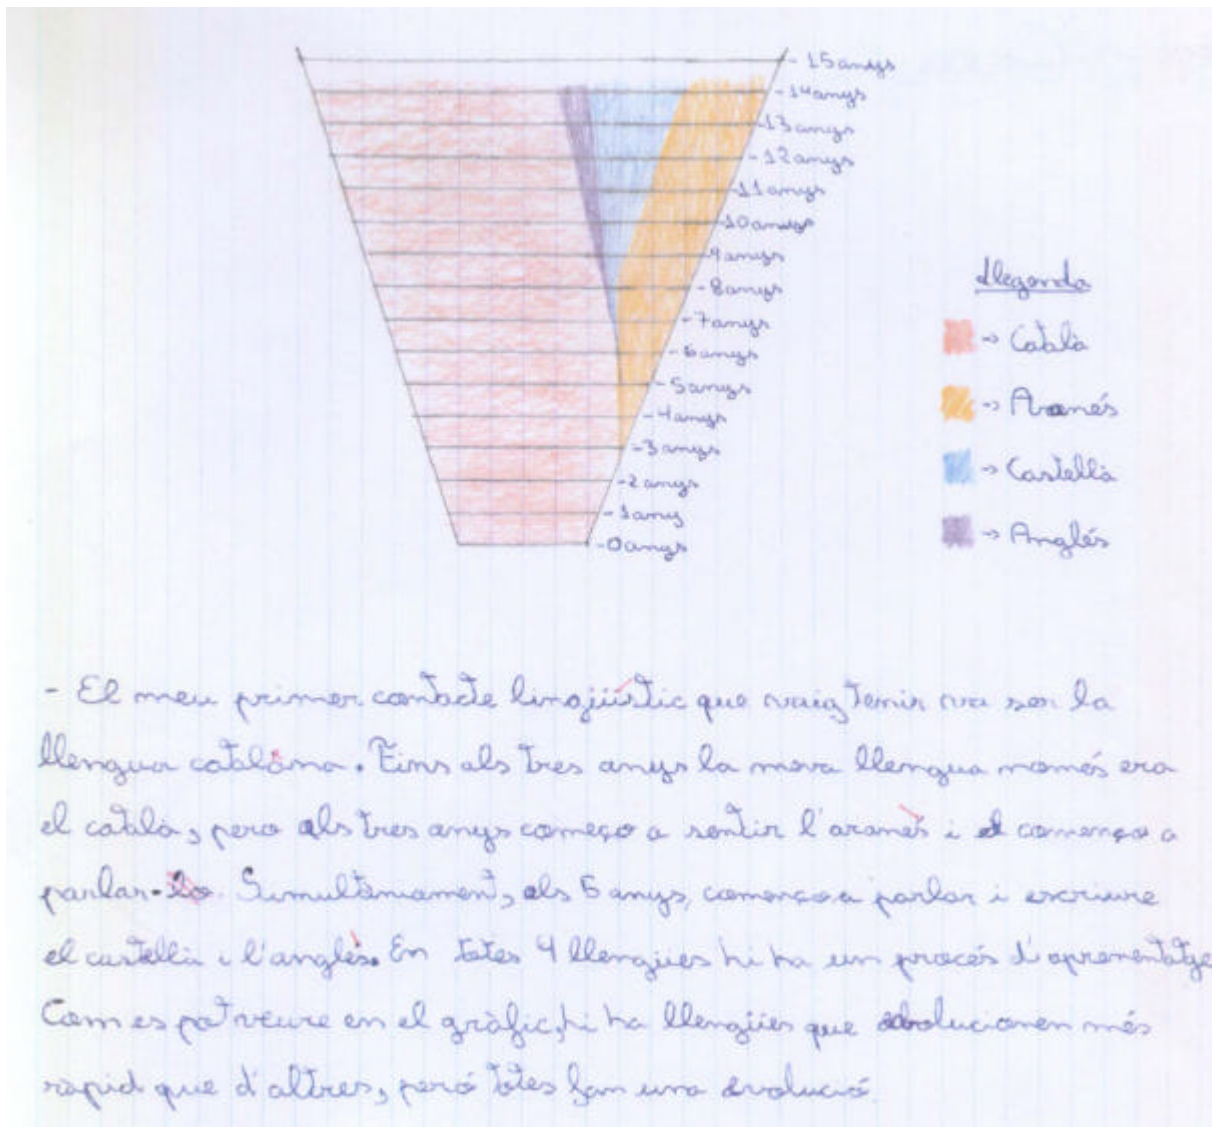 - 15 anys
- 14 anys
- 13 anys
- 12 anys
- 11 anys
- 10 anys
- 9 anys
- 8 anys
- 7 anys
- 6 anys
- 5 anys
- 4 anys
- 3 anys
- 2 anys
- 1 any
- 0 anys
Llegenda
→ Català
→ Aranés
→ Castellà
→ Anglés
- El meu primer contacte lingüístic que vaig tenir va ser la
llengua catalana. Fins als tres anys la meva llengua només era
el català, pero als tres anys començo a sentir l'aranès i començo a
parlar-lo. Simultàniament, als 5 anys, començo a parlar i escriure
el castellà i l'anglès. En totes 4 llengües hi ha un procés d'aprenentatge
Com es pot veure en el gràfic, hi ha llengües que evolucionen més
ràpid que d'altres, peró totes fan una evolució.